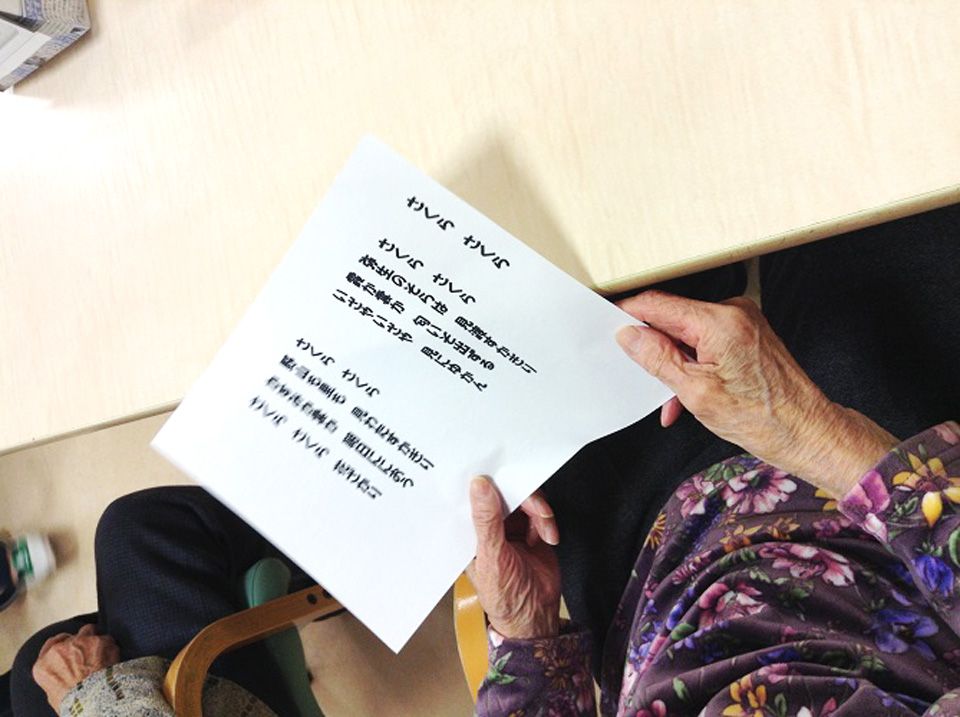 さくら さくら
さくら さくら
弥生のそらは 見渡すかぎり
霞か雲か 匂いぞ出ずる
いざやいざや 見にゆかん
さくら さくら
野山も里も 見わたすかぎり
かすみか雲か 朝日ににおう
さくら さくら 花ざかり